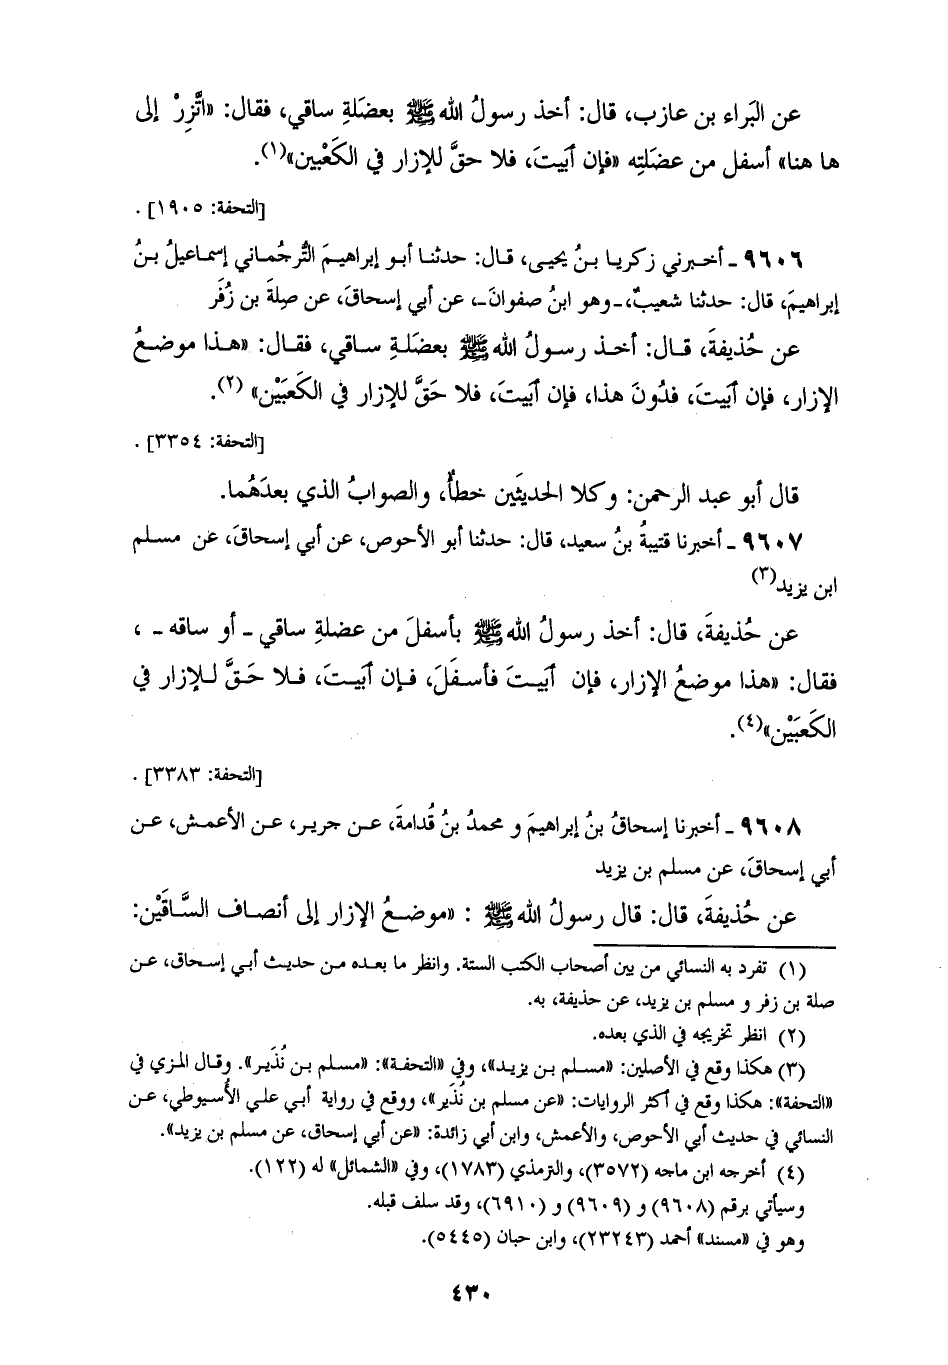 عن البَراء بن عازب، قال: أخذ رسولُ الله ﷺ بعضَلةِ ساقي، فقال: «اتَّزِرْ إلى
ها هنا» أسفل من عضَلتِه «فإن أبَيتَ، فلا حقَّ للإزار في الكَعْبين»(١).
[التحفة: ١٩٠٥] .
٩٦٠٦ ـ أخبرني زكريا بنُ يحيى، قال: حدثنا أبو إبراهيمَ التُّرجُماني إسماعيلُ بنُ
إبراهيمَ، قال: حدثنا شعيبٌ، ـ وهو ابنُ صفوانَ ـ، عن أبي إسحاقَ، عن صِلَةَ بن زُفَر
عن حُذيفةَ، قال: أخذ رسولُ الله ﷺ بعضَلةِ ساقي، فقال: «هذا موضعُ
الإزار، فإن أبَيتَ، فدُونَ هذا، فإن أبَيتَ، فلا حَقَّ للإزار في الكَعبَيْن» (٢).
[التحفة: ٣٣٥٤] .
قال أبو عبد الرحمن: وكلا الحديثَين خطأٌ، والصوابُ الذي بعدَهُما.
٩٦٠٧ ـ أخبرنا قتيبةُ بنُ سعيد، قال: حدثنا أبو الأحوص، عن أبي إسحاقَ، عن مسلم
ابن يزيد(٣)
عن حُذيفةَ، قال: أخذ رسولُ الله ﷺ بأسفلَ من عضلةِ ساقي ـ أو ساقه ـ ،
فقال: «هذا موضعُ الإزار، فإن أبَيتَ فأسفَلَ، فإن أبَيتَ، فلا حَقَّ للإزار في
الكَعبَيْن»(٤).
[التحفة: ٣٣٨٣] .
٩٦٠٨ ـ أخبرنا إسحاقُ بنُ إبراهيمَ و محمدُ بنُ قُدامةَ، عن جرير، عن الأعمش، عن
أبي إسحاقَ، عن مسلم بن يزيد
عن حُذيفةَ، قال: قال رسولُ الله ﷺ : «موضعُ الإزار إلى أنصاف السَّاقَيْن:
(١) تفرد به النسائي من بين أصحاب الكتب الستة. وانظر ما بعده من حديث أبي إسحاق، عن
صلة بن زفر و مسلم بن يزيد، عن حذيفة، به.
(٢) انظر تخريجه في الذي بعده.
(٣) هكذا وقع في الأصلين: «مسلم بن يزيد»، وفي «التحفة»: «مسلم بن نُذَير». وقال المزي في
«التحفة»: هكذا وقع في أكثر الروايات: «عن مسلم بن نُذَير»، ووقع في رواية أبي علي الأُسيوطي، عن
النسائي في حديث أبي الأحوص، والأعمش، وابن أبي زائدة: «عن أبي إسحاق، عن مسلم بن يزيد».
(٤) أخرجه ابن ماجه (٣٥٧٢)، والترمذي (١٧٨٣)، وفي «الشمائل» له (١٢٢).
وسيأتي برقم (٩٦٠٨) و (٩٦٠٩) و (٦٩١٠)، وقد سلف قبله.
وهو في «مسند» أحمد (٢٣٢٤٣)، وابن حبان (٥٤٤٥).
٤٣٠